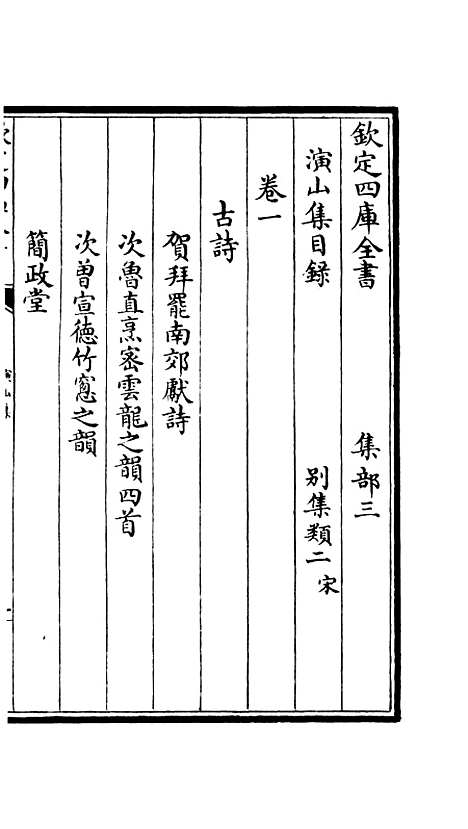 欽定四庫全書 集部三
演山集目録 别集類二 宋
卷一
古詩
賀拜罷南郊獻詩
次魯直烹宻雲龍之韻四首
次曽宣徳竹窻之韻
簡政堂